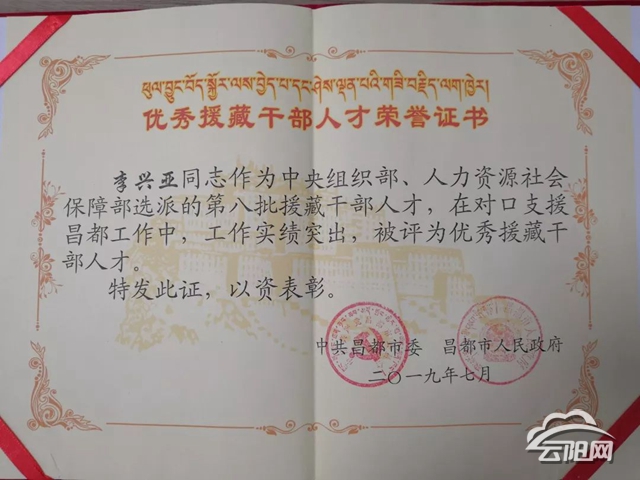 ཕུལ་བྱུང་བོད་སྐྱོར་ལས་བྱེད་པ་དང་ཤེས་ལྡན་པའི་གཟི་བརྗིད་ལག་ཁྱེར།
优秀援藏干部人才荣誉证书
李兴亚同志作为中央组织部、人力资源社会
保障部选派的第八批援藏干部人才，在对口支援
昌都工作中，工作实绩突出，被评为优秀援藏干
部人才。
特发此证，以资表彰。
中共昌都市委 昌都市人民政府
二〇一九年七月
云阳网